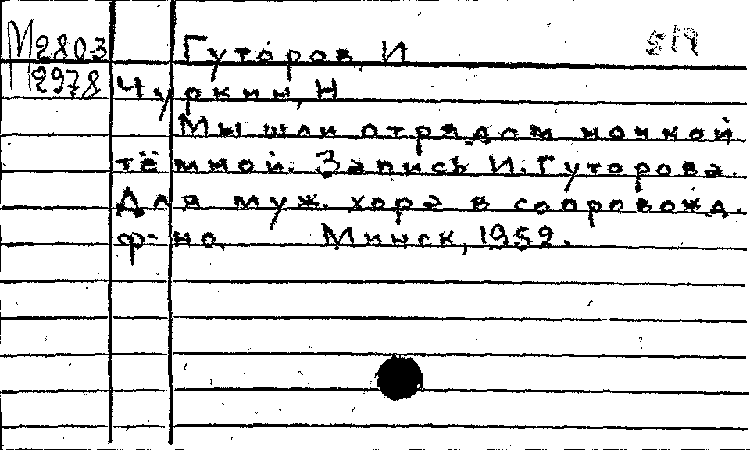 М2803 Гуторов, И 519
2978 Чуркин, Н
Мы шли отрядом ночкой
тёмной. Запись И. Гуторова.
Для муж. хора в сопровожд.
ф-но. Минск, 1952.